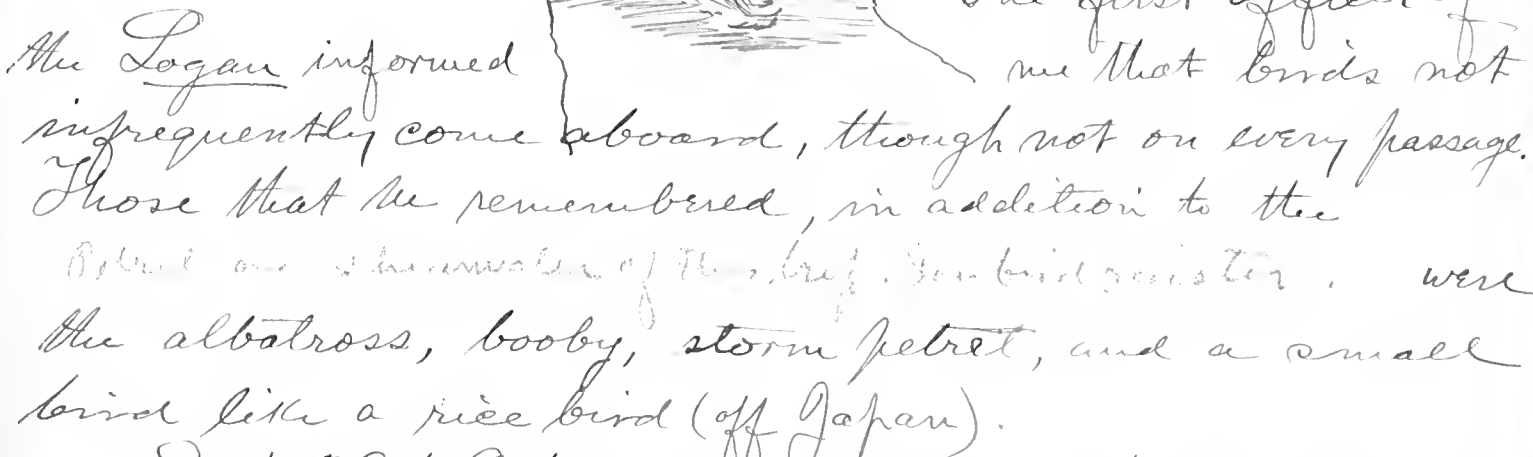 The first officer of
the Logan informed me that birds not
infrequently come aboard, though not on every passage.
Those that he remembered, in addition to the
Petrel or shearwater of the
were
the albatross, booby, storm petrel, and a small
bird like a rice bird (off Japan).